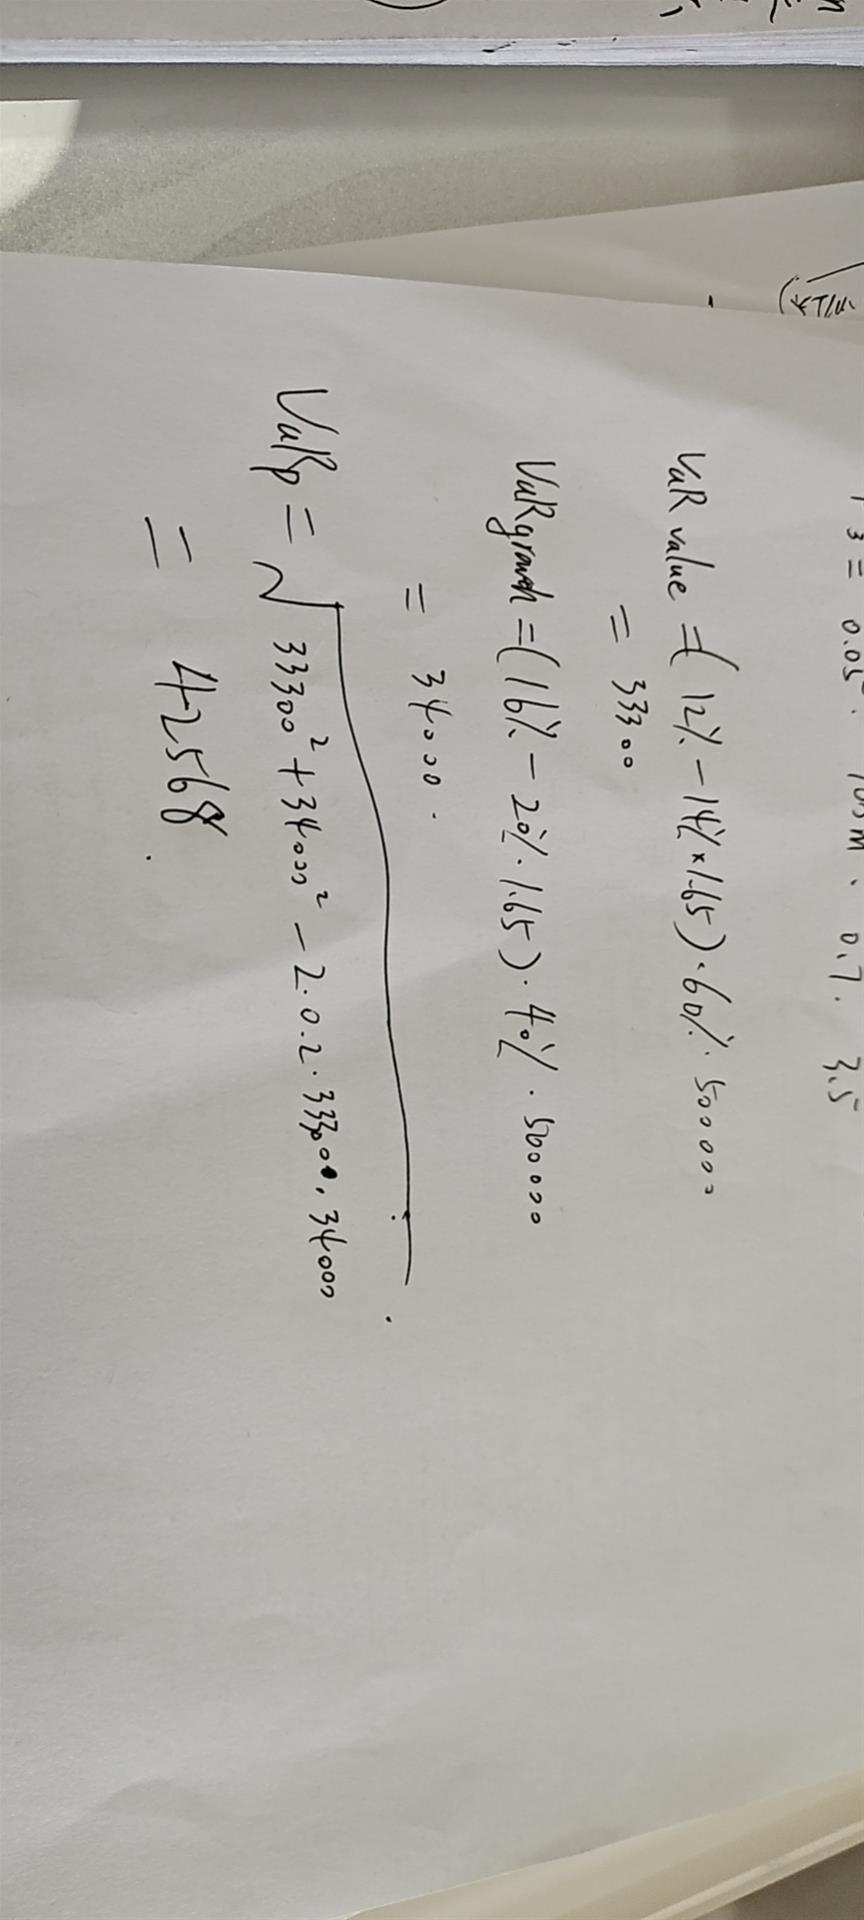 3 = 0.05 · 105M · 0.7 · 3.5
VaR value = ( 12% - 14% × 1.65 ) · 60% · 500000
= 33300
VaR growth = ( 16% - 20% · 1.65 ) · 40% · 500000
= 34000 .
VaRp = √ 33300² + 34000² - 2 · 0.2 · 33300 · 34000 .
= 42568 .